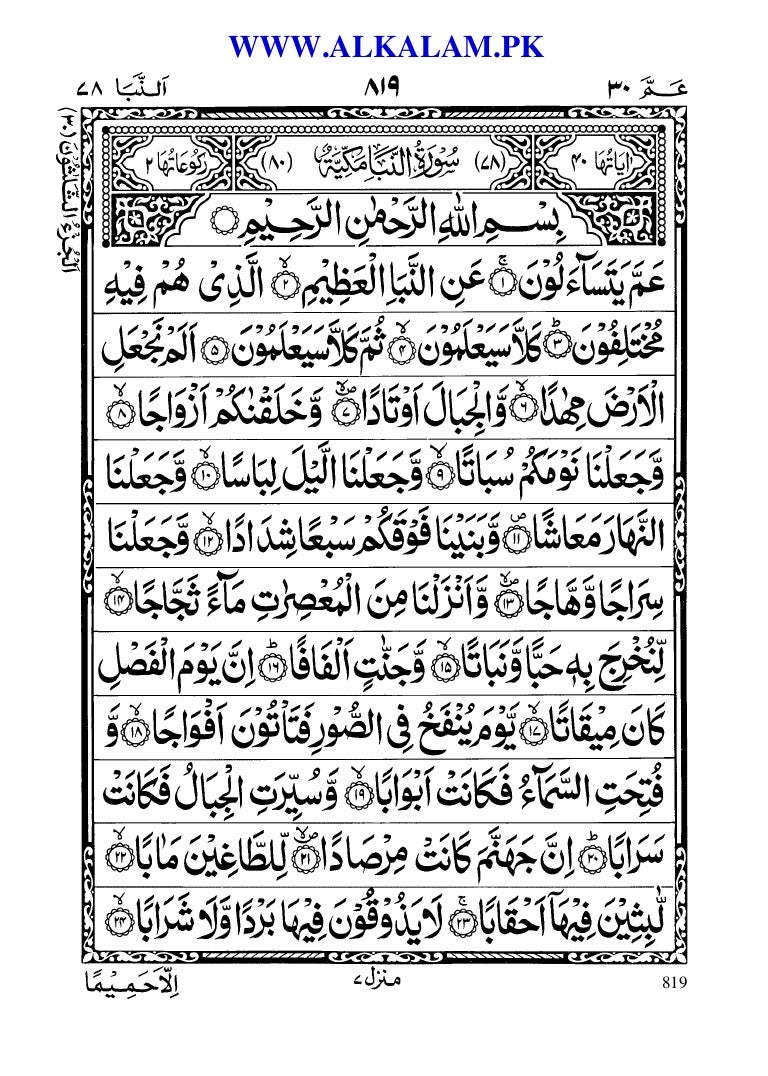 WWW.ALKALAM.PK
عَـمَّ ٣٠ ٨١٩ اَلنَّبَا ٧٨
اَلْجُزْءُ الثَّلَاثُوْنَ (٣٠)
اٰيَاتُهَا ٤٠ (٧٨) سُوْرَةُ النَّبَاِ مَكِّيَّةٌ (٨٠) رُكُوْعَاتُهَا ٢
بِسْمِ اللّٰهِ الرَّحْمٰنِ الرَّحِيْمِ
عَمَّ يَتَسَآءَلُوْنَ ۚ ١ عَنِ النَّبَاِ الْعَظِيْمِ ۙ ٢ الَّذِيْ هُمْ فِيْهِ
مُخْتَلِفُوْنَ ؕ ٣ كَلَّا سَيَعْلَمُوْنَ ۙ ٤ ثُمَّ كَلَّا سَيَعْلَمُوْنَ ٥ اَلَمْ نَجْعَلِ
الْاَرْضَ مِهٰدًا ۙ ٦ وَّالْجِبَالَ اَوْتَادًا ۪ۙ ٧ وَّخَلَقْنٰكُمْ اَزْوَاجًا ۙ ٨
وَّجَعَلْنَا نَوْمَكُمْ سُبَاتًا ۙ ٩ وَّجَعَلْنَا الَّيْلَ لِبَاسًا ۙ ١٠ وَّجَعَلْنَا
النَّهَارَ مَعَاشًا ۪ ١١ وَّبَنَيْنَا فَوْقَكُمْ سَبْعًا شِدَادًا ۙ ١٢ وَّجَعَلْنَا
سِرَاجًا وَّهَّاجًا ۪ۙ ١٣ وَّاَنْزَلْنَا مِنَ الْمُعْصِرٰتِ مَآءً ثَجَّاجًا ۙ ١٤
لِّنُخْرِجَ بِهٖ حَبًّا وَّنَبَاتًا ۙ ١٥ وَّجَنّٰتٍ اَلْفَافًا ؕ ١٦ اِنَّ يَوْمَ الْفَصْلِ
كَانَ مِيْقَاتًا ۙ ١٧ يَّوْمَ يُنْفَخُ فِي الصُّوْرِ فَتَاْتُوْنَ اَفْوَاجًا ۙ ١٨ وَّ
فُتِحَتِ السَّمَآءُ فَكَانَتْ اَبْوَابًا ۙ ١٩ وَّسُيِّرَتِ الْجِبَالُ فَكَانَتْ
سَرَابًا ؕ ٢٠ اِنَّ جَهَنَّمَ كَانَتْ مِرْصَادًا ۪ۙ ٢١ لِّلطَّاغِيْنَ مَاٰبًا ۙ ٢٢
لّٰبِثِيْنَ فِيْهَاۤ اَحْقَابًا ۚ ٢٣ لَا يَذُوْقُوْنَ فِيْهَا بَرْدًا وَّلَا شَرَابًا ۙ ٢٤
819 منزل ٧ اِلَّا حَمِيْمًا